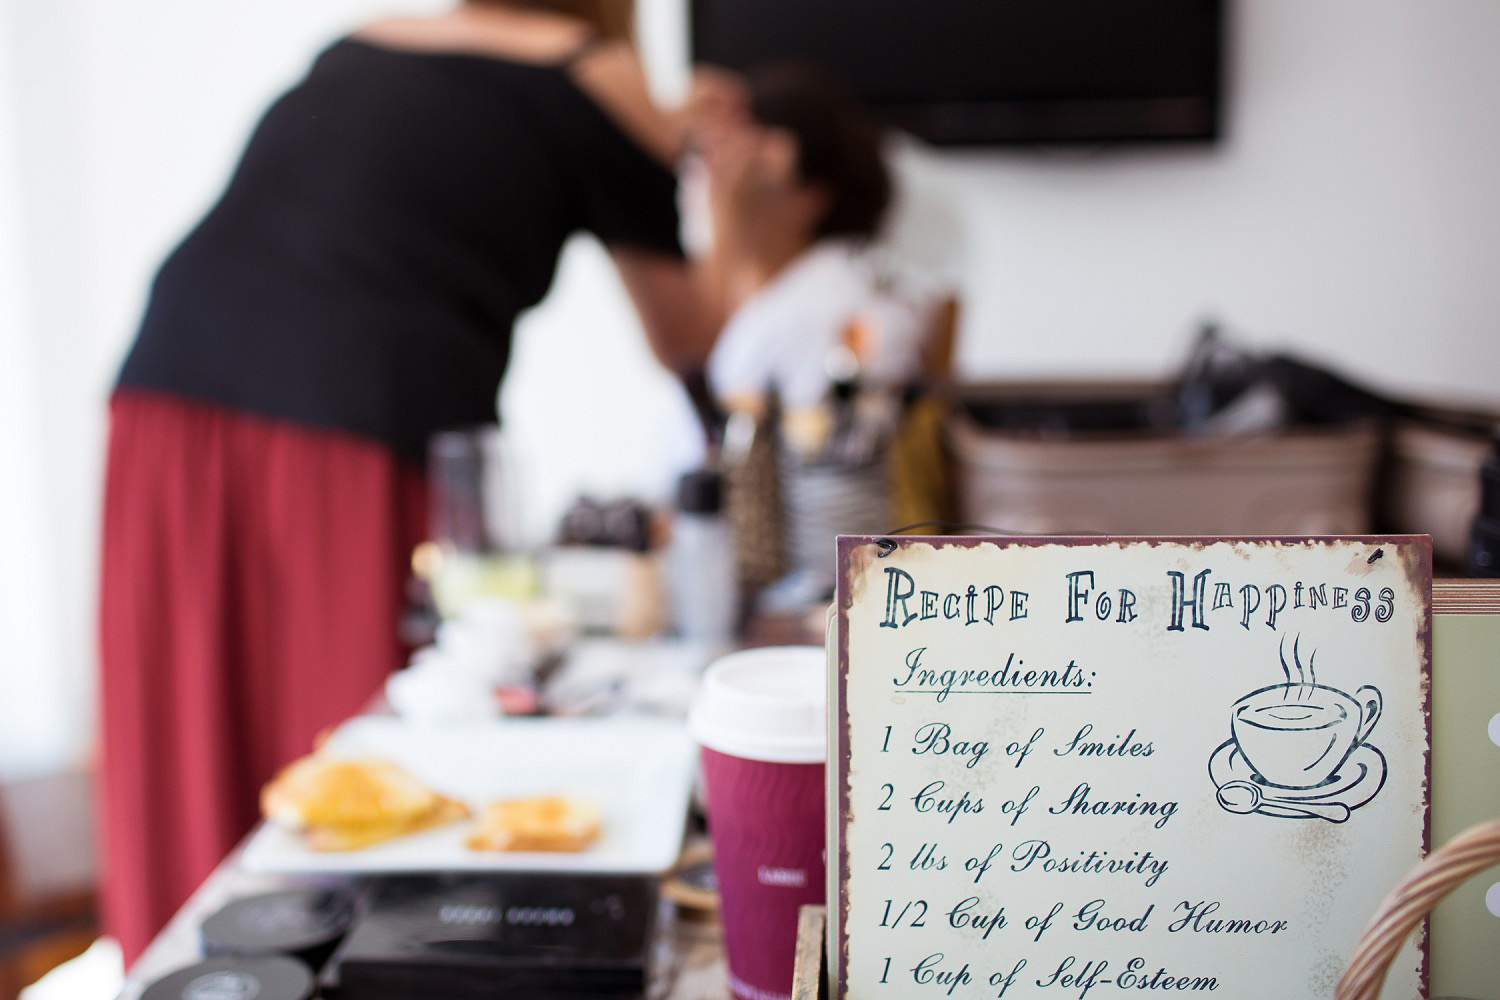 Recipe For Happiness
Ingredients:
1 Bag of Smiles
2 Cups of Sharing
2 lbs of Positivity
1/2 Cup of Good Humor
1 Cup of Self-Esteem